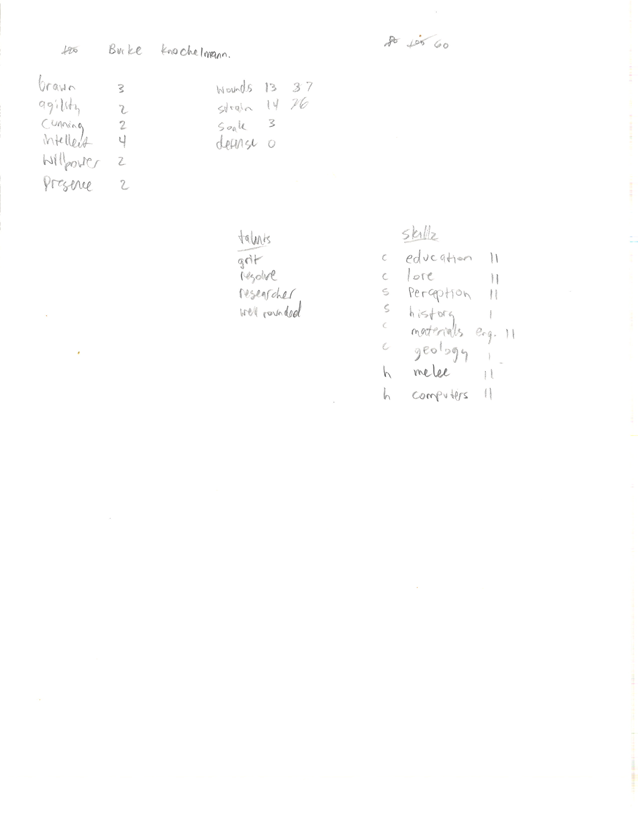 Burke Knochelmann.
60
brawn 3
agility 2
Cunning 2
intellect 4
Willpower 2
Presence 2
Wounds 13 37
Strain 14 26
Soak 3
defense 0
talents
grit
resolve
researcher
well rounded
skillz
c education ||
c lore ||
s Perception ||
s history |
c materials eng. ||
c geology |
h melee ||
h computers ||